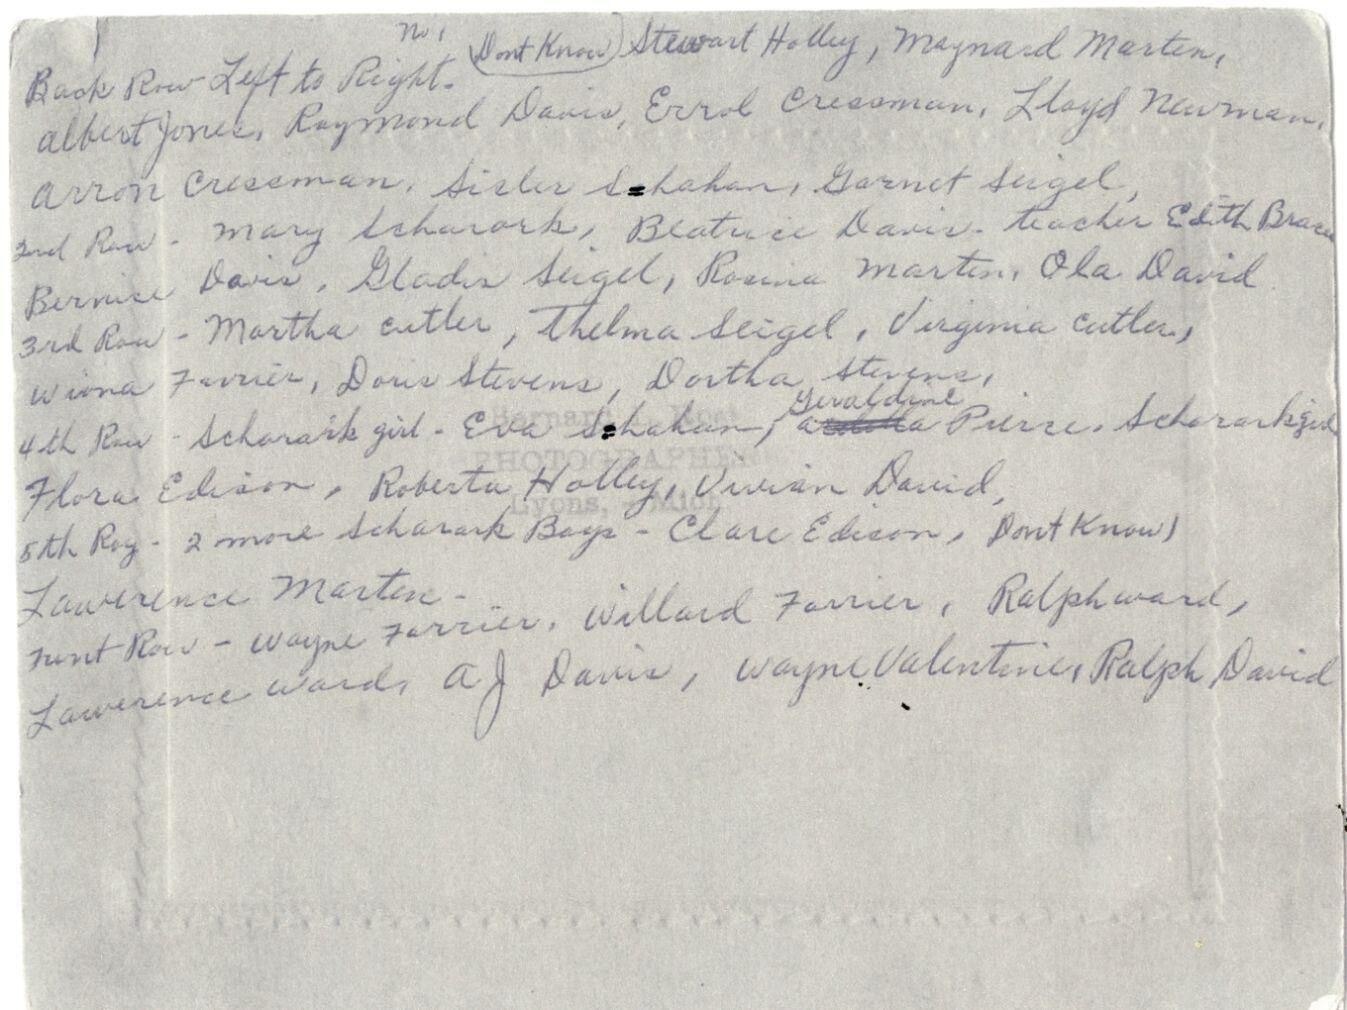 No 1
Back Row Left to Right. (Dont Know) Stewart Holley, Maynard Marten,
Albert Jones, Raymond Davis, Errol Cressman, Lloyd Newman,
Arron Cressman, Sisler Shahan, Garnet Seigel,
2nd Row - Mary Scharark, Beatrice Davis - teacher Edith Brace
Bernise Davis, Gladis Seigel, Rosina Marten, Ola David
3rd Row - Martha Cutler, Thelma Seigel, Virginia Cutler,
Wiona Farrier, Doris Stevens, Dortha Stevens,
4th Row - Scharark girl - Eva Shahan, Geraldine Pierce, Scharark girl
Flora Edison, Roberta Holley, Vivian David,
5th Roy - 2 more Scharark Boys - Clare Edison, Dont Know)
Lawerence Marten -
Funt Row - Wayne Farrier, Willard Farrier, Ralph Ward,
Lawerence Ward, A J Davis, Wayne Valentine, Ralph David
PHOTOGRAPHER
Lyons, - Mich